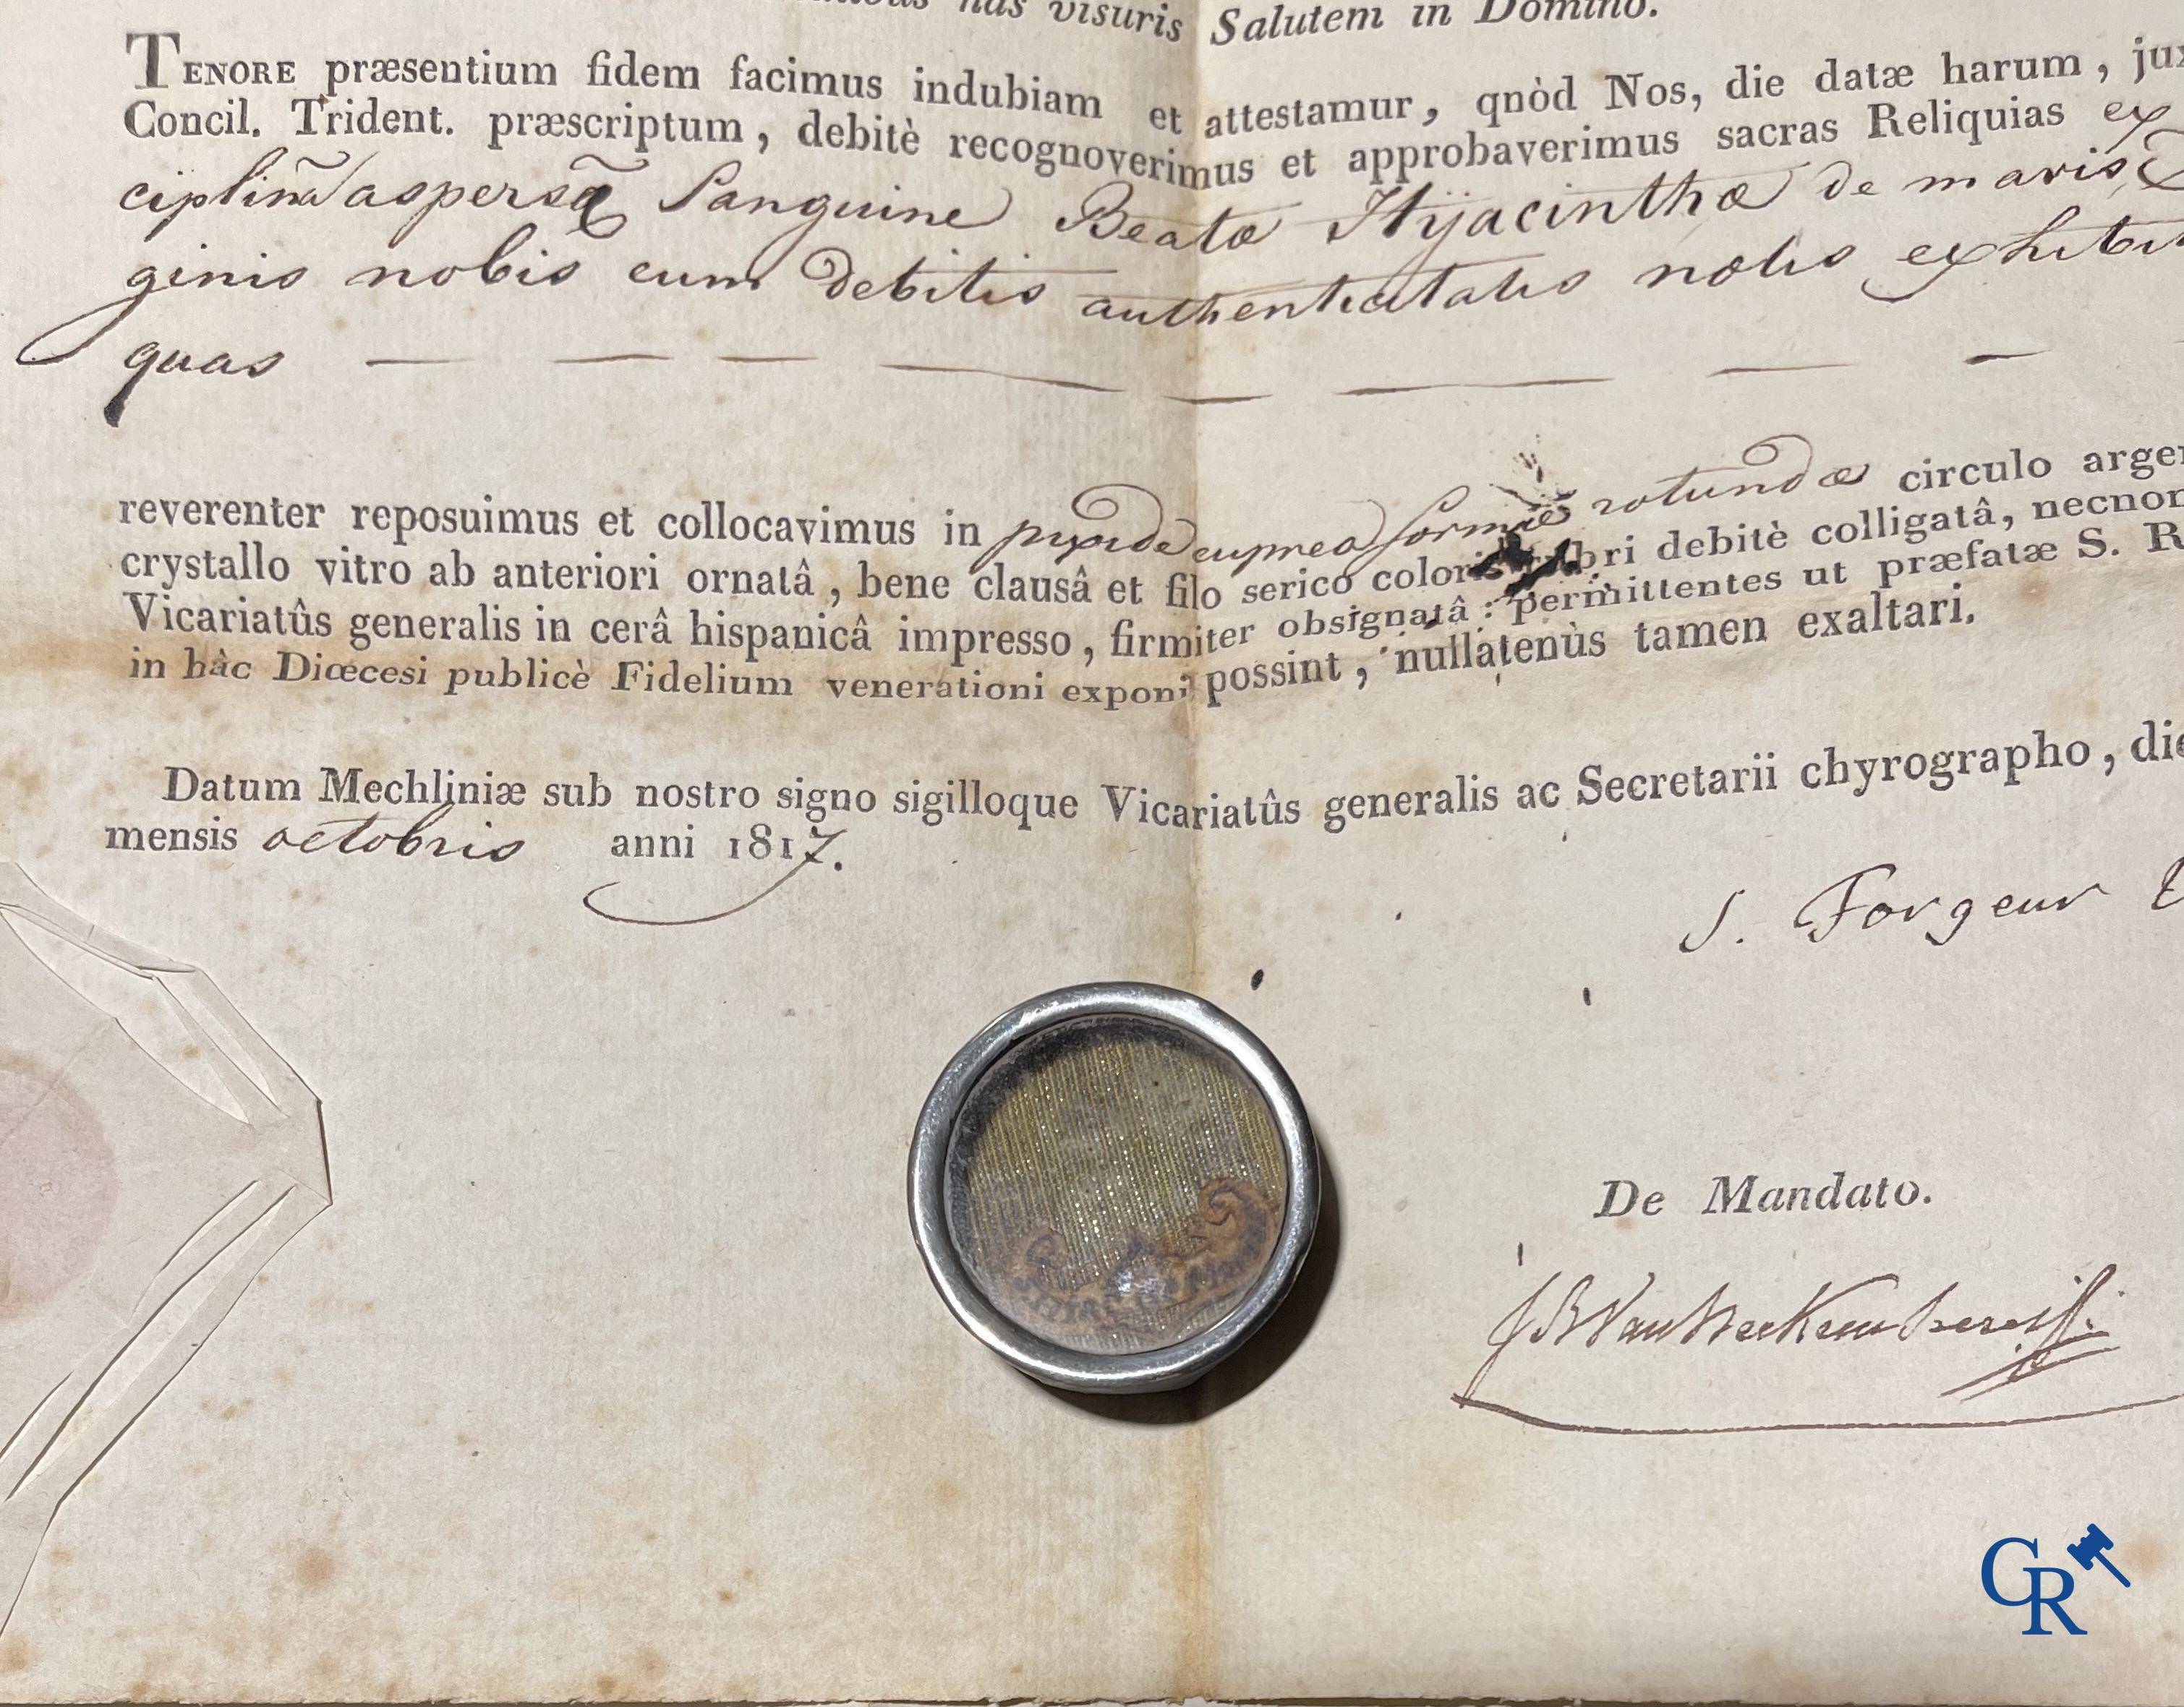 has visuris Salutem in Domino.
TENORE præsentium fidem facimus indubiam et attestamur, qnòd Nos, die datæ harum, jux
Concil. Trident. præscriptum, debitè recognoverimus et approbaverimus sacras Reliquias ex
ciplinã aspersã Sanguine Beatæ Hyacinthæ de maris
ginis nobis cum debitis authenticitatis nobis exhibit
quas
reverenter reposuimus et collocavimus in pyxide cuprea formæ rotundæ circulo arge
crystallo vitro ab anteriori ornatâ, bene clausâ et filo serico coloris rubri debitè colligatâ, necnon
Vicariatûs generalis in cerâ hispanicâ impresso, firmiter obsignatâ: permittentes ut præfatæ S. R
in hâc Diœcesi publicè Fidelium venerationi exponi possint, nullatenùs tamen exaltari.
Datum Mechliniæ sub nostro signo sigilloque Vicariatûs generalis ac Secretarii chyrographo, die
mensis octobris anni 1817.
J. Forgeur
De Mandato.
GR